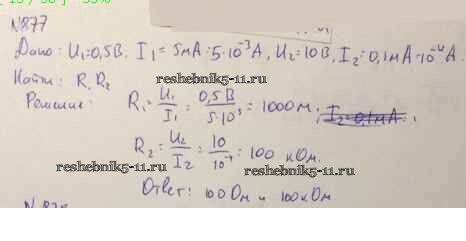 N877
Дано: U₁=0,5В, I₁ = 5мА = 5·10⁻³А, U₂=10В, I₂=0,1мА·10⁻⁴А,
Найти: R₁ R₂
reshebnik5-11.ru
Решение: R₁=U₁/I₁=0,5В/5·10⁻³=100Ом; I₂=0,1мА.
R₂=U₂/I₂=10/10⁻⁴=100 кОм.
reshebnik5-11.ru reshebnik5-11.ru
Ответ: 100Ом и 100кОм